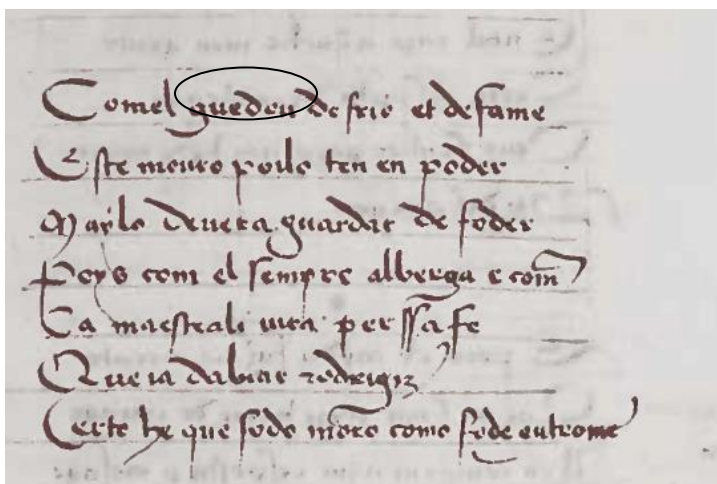 Comel guedou de frio et de fame
Este mouro poilo ten en poder
Mayslo deuera guardar de foder
Poys com el sempre alberga e com
Ca maestrali uica per ssa fe
Que ia dalvar rodrigiz
Certe he que fode mouro como fode outrome